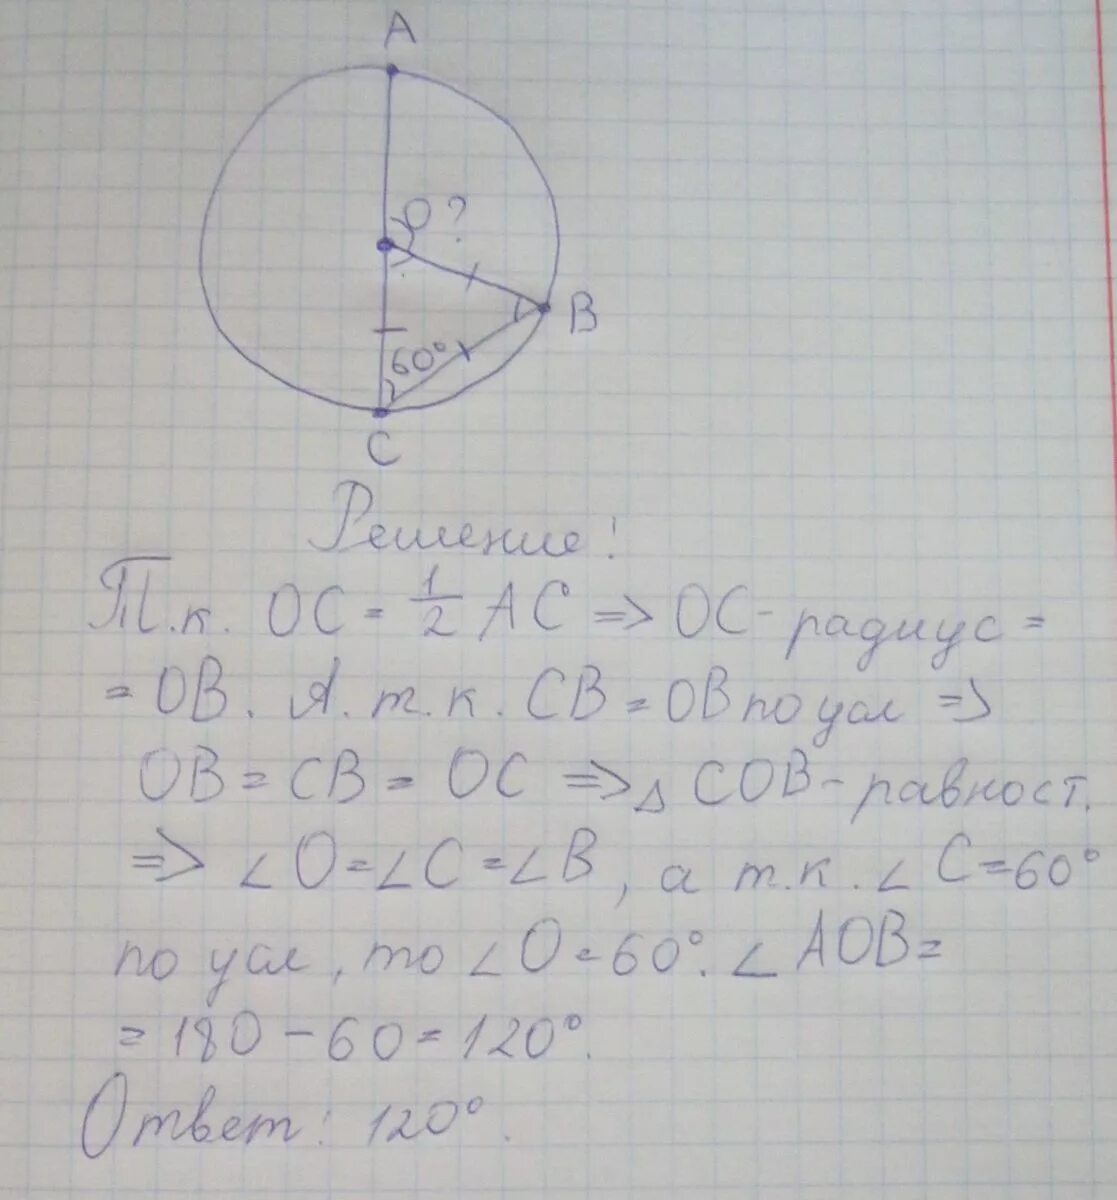 A
O ?
B
60°
C
Решение!
Т.к. OC = 1/2 AC => OC - радиус =
= OB. А. т. к. CB = OB по усл =>
OB = CB = OC => △ COB - равност.
=> ∠O = ∠C = ∠B, а т.к. ∠C = 60°
по усл, то ∠O = 60°. ∠AOB =
= 180 - 60 = 120°.
Ответ: 120°.